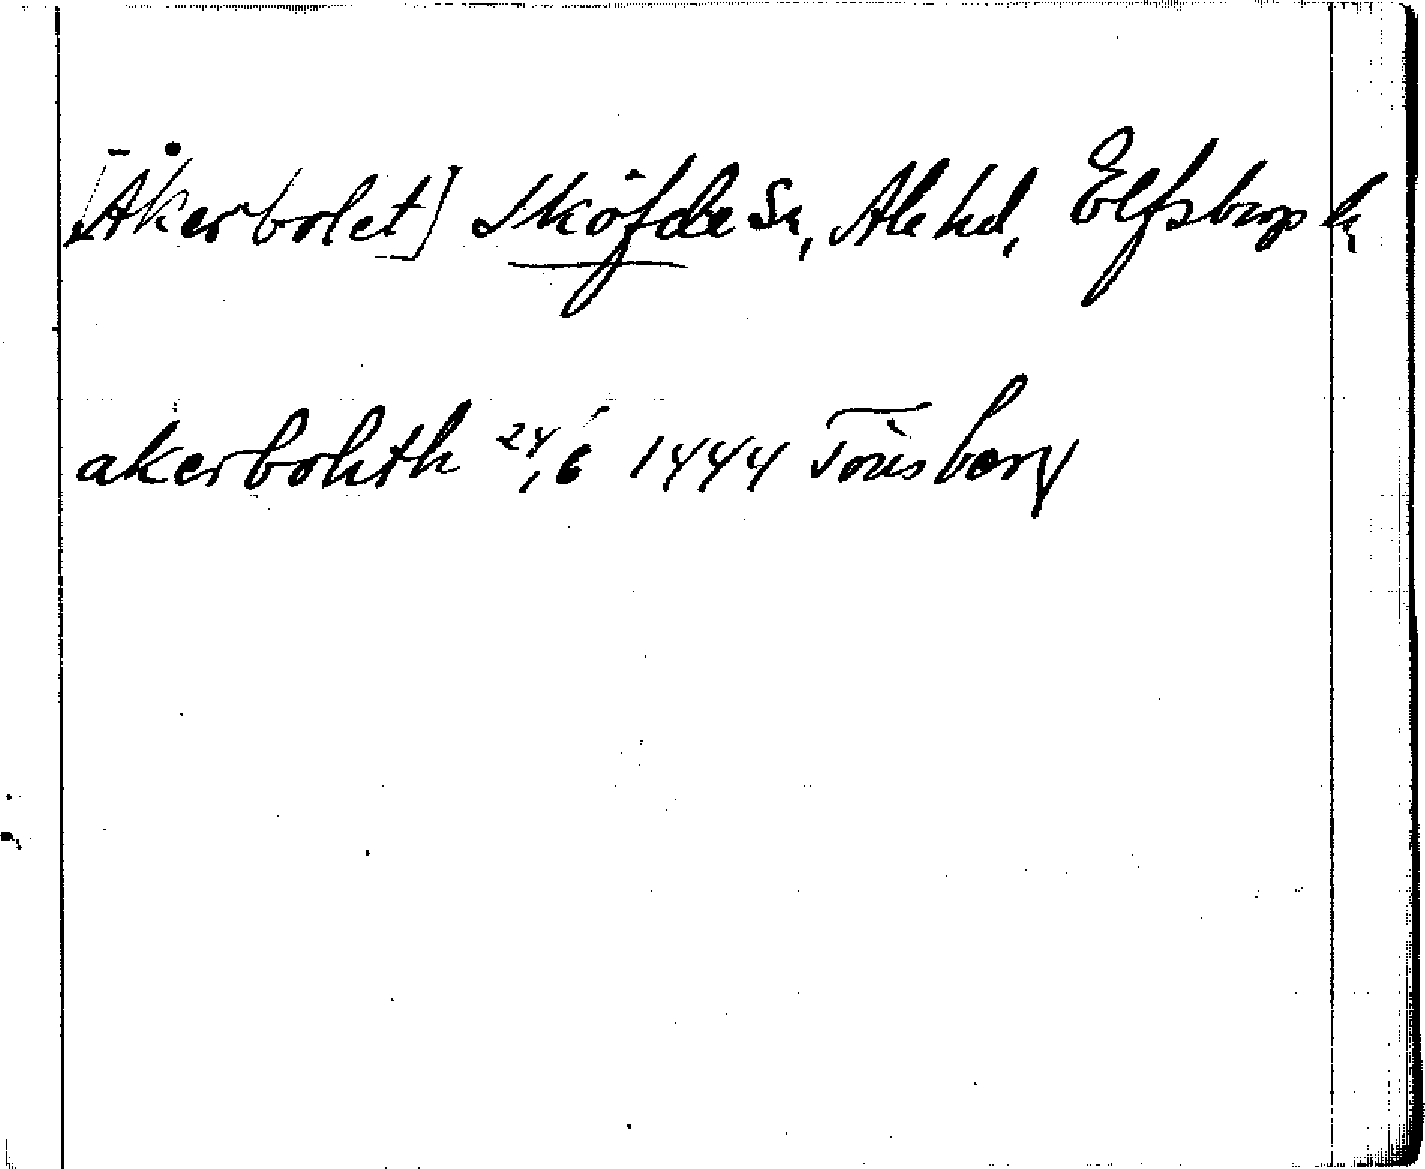 [Åkerbolet] Sköfde sn, Ale hd, Elfsborgs l.
akerbolith 24/6 1444 Tönsberg